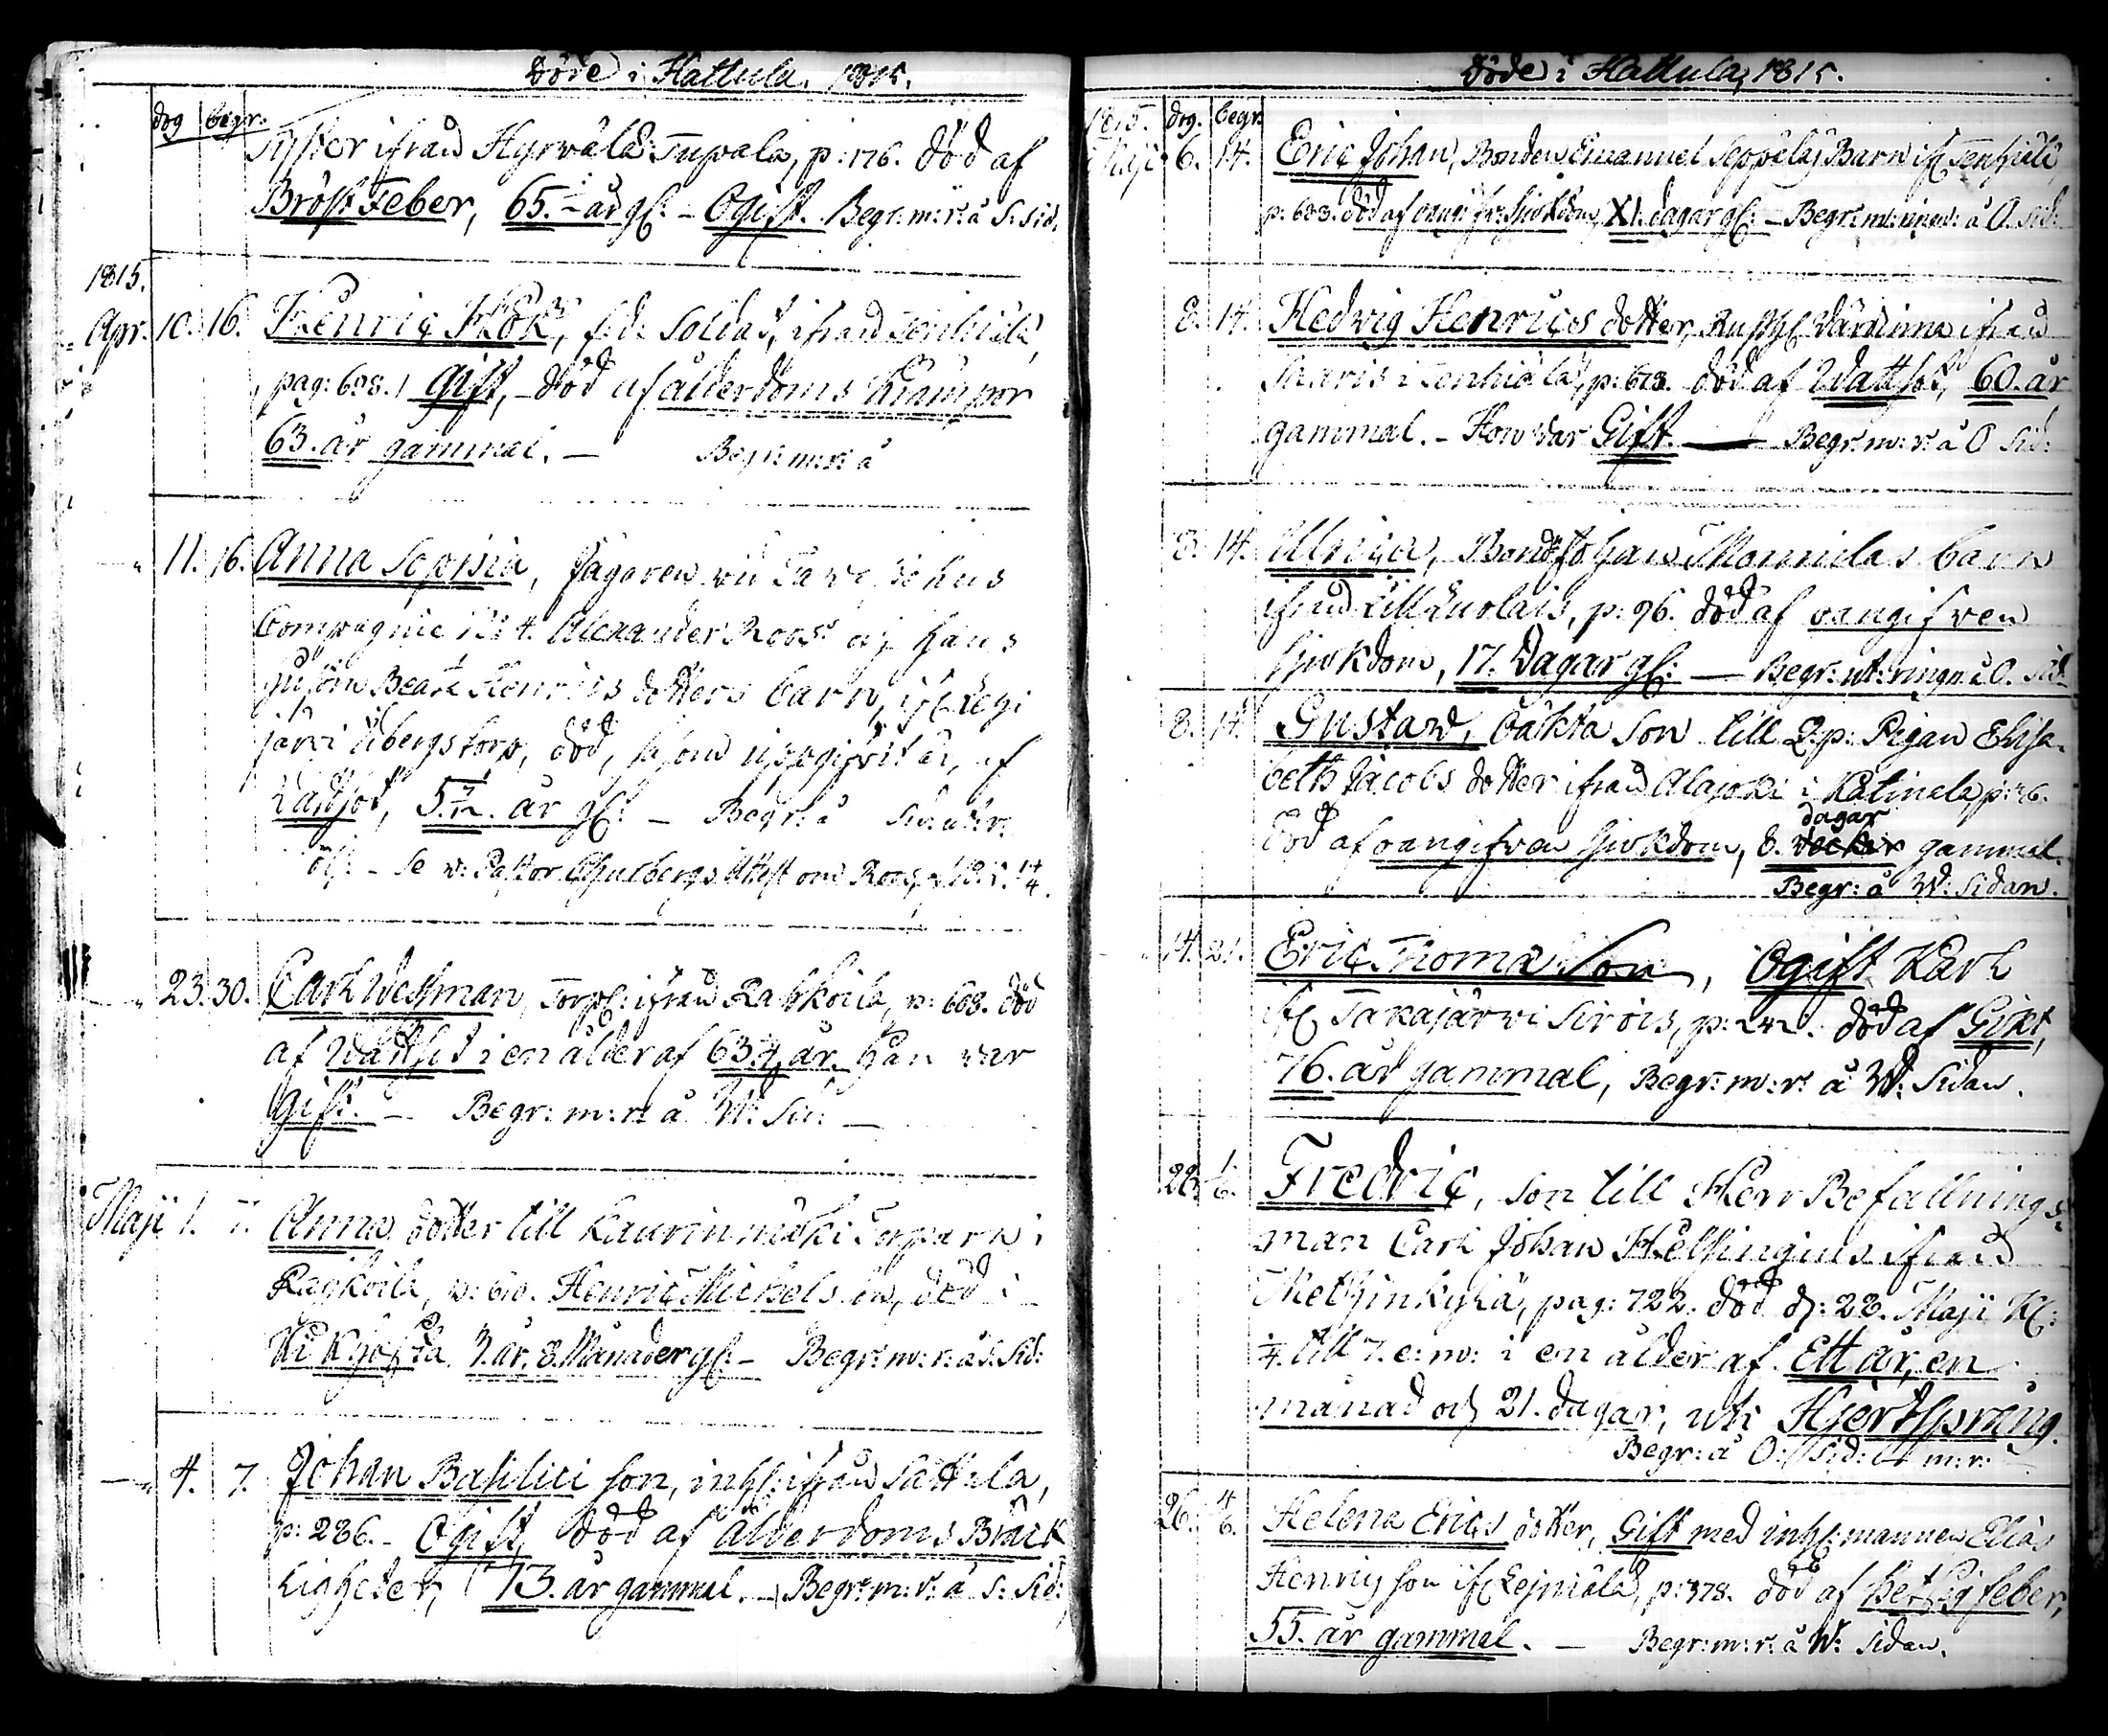 Döde i Hattula. 1815.
dog begr.
Syster ifrand Hyrvälä Tupala, p: 176. död af
Bröst Feber, 65. år gl: - Ogift. Begr: m: r: å S: Sid.
1815.
Apr. 10. 16. Henric Hök, f.d. Soldat, ifrand Tenhiälä,
pag: 698. Gift, död af ålderdoms Krämpor
63. år gammal. - Begr: m: r: å
11. 16. Anna Sophia, Jägaren vid Tavastehus
Compagnie N:o 4. Alexander Roos och hans
Hustru Beata Henrics dotters barn, ifr. Leġi
järvi Übergs torp, död, som uppgifvit är, af
Wattsot, 5 år gl: - Begr: å Sid: ut: r:
- Se v: Pastor Attest om Roos, 18 14/4.
23. 30. Carl Wessman, Torp: ifrand Rahkoila, p: 608. död
af Wattsot i en ålder af 63 år. Han var
Gift. - Begr: m: r: å W: Sid: -
Maji 1. 7. Anna dotter till Laurinmäki Torparn i
Rahkoila, p: 610. Henric Michels son, död i
Kikhosta 3. år. 8. Månader gl: - Begr: m: r: å S: Sid:
4. 7. Johan Basilii son, inhs: ifrand Sattula,
p: 286. - Ogift, död af Ålderdoms Bräck
ligheter, 73. år gammal. - Begr: m: r: å S: Sid:
Döde i Hattula, 1815.
1815. dog. begr.
Maji 6. 14. Eric Johan, Bonden Emanuel Seppäläs Barn ifr Tenhiälä,
p: 683. död af oangifv: Sjukdom, XI. dagar gl: - Begr: ut: ringn: å O. Sid:
8. 14. Hedvig Henrics dotter, Rusth: Värdinna ifrand
Saaris i Tenhiälä, p: 673. död af Wattsot, 60. år
gammal. - Hon var Gift. - Begr: m: r: å O Sid:
8. 14. Ulrica, Bond: Johan Mamilas barn
ifrand Lill Luolais, p: 96. död af oangifven
sjukdom, 17. Dagar gl: - Begr: ut: ringn: å O. Sid:
8. 14. Gustaw, oäkta Son till Q.p: Pigan Elisa-
beth Jacobs dotter ifrand Alajoki i Katinala, p: 76.
dagar
död af oangifven sjukdom, 8. veckor gammal.
Begr: å W: Sidan.
14. 21. Eric Thomæ Son, Ogift Karl
ifr Takajärvi Sirois, p: 242. död af Gikt,
76. år gammal, Begr: m: r: å W: Sidan.
23. 1/6. Fredric, son till Herr Befallnings-
man Carl Johan Helsingius ifrand
Metsinkylä, pag: 722. död d: 23. Maji Kl:
1/4. till 7. e: m: i en ålder af Ett år, en
månad och 21. dagar, uti Hjertsprång.
Begr: å O: Sid: ut m: r: -
26. 4/6. Helena Erics dotter, Gift med inhs: mannen Elias
Henrics son ifr Lejniälä, p: 378. död af hetsig feber,
55. år gammal. - Begr: m: r: å W: Sidan.